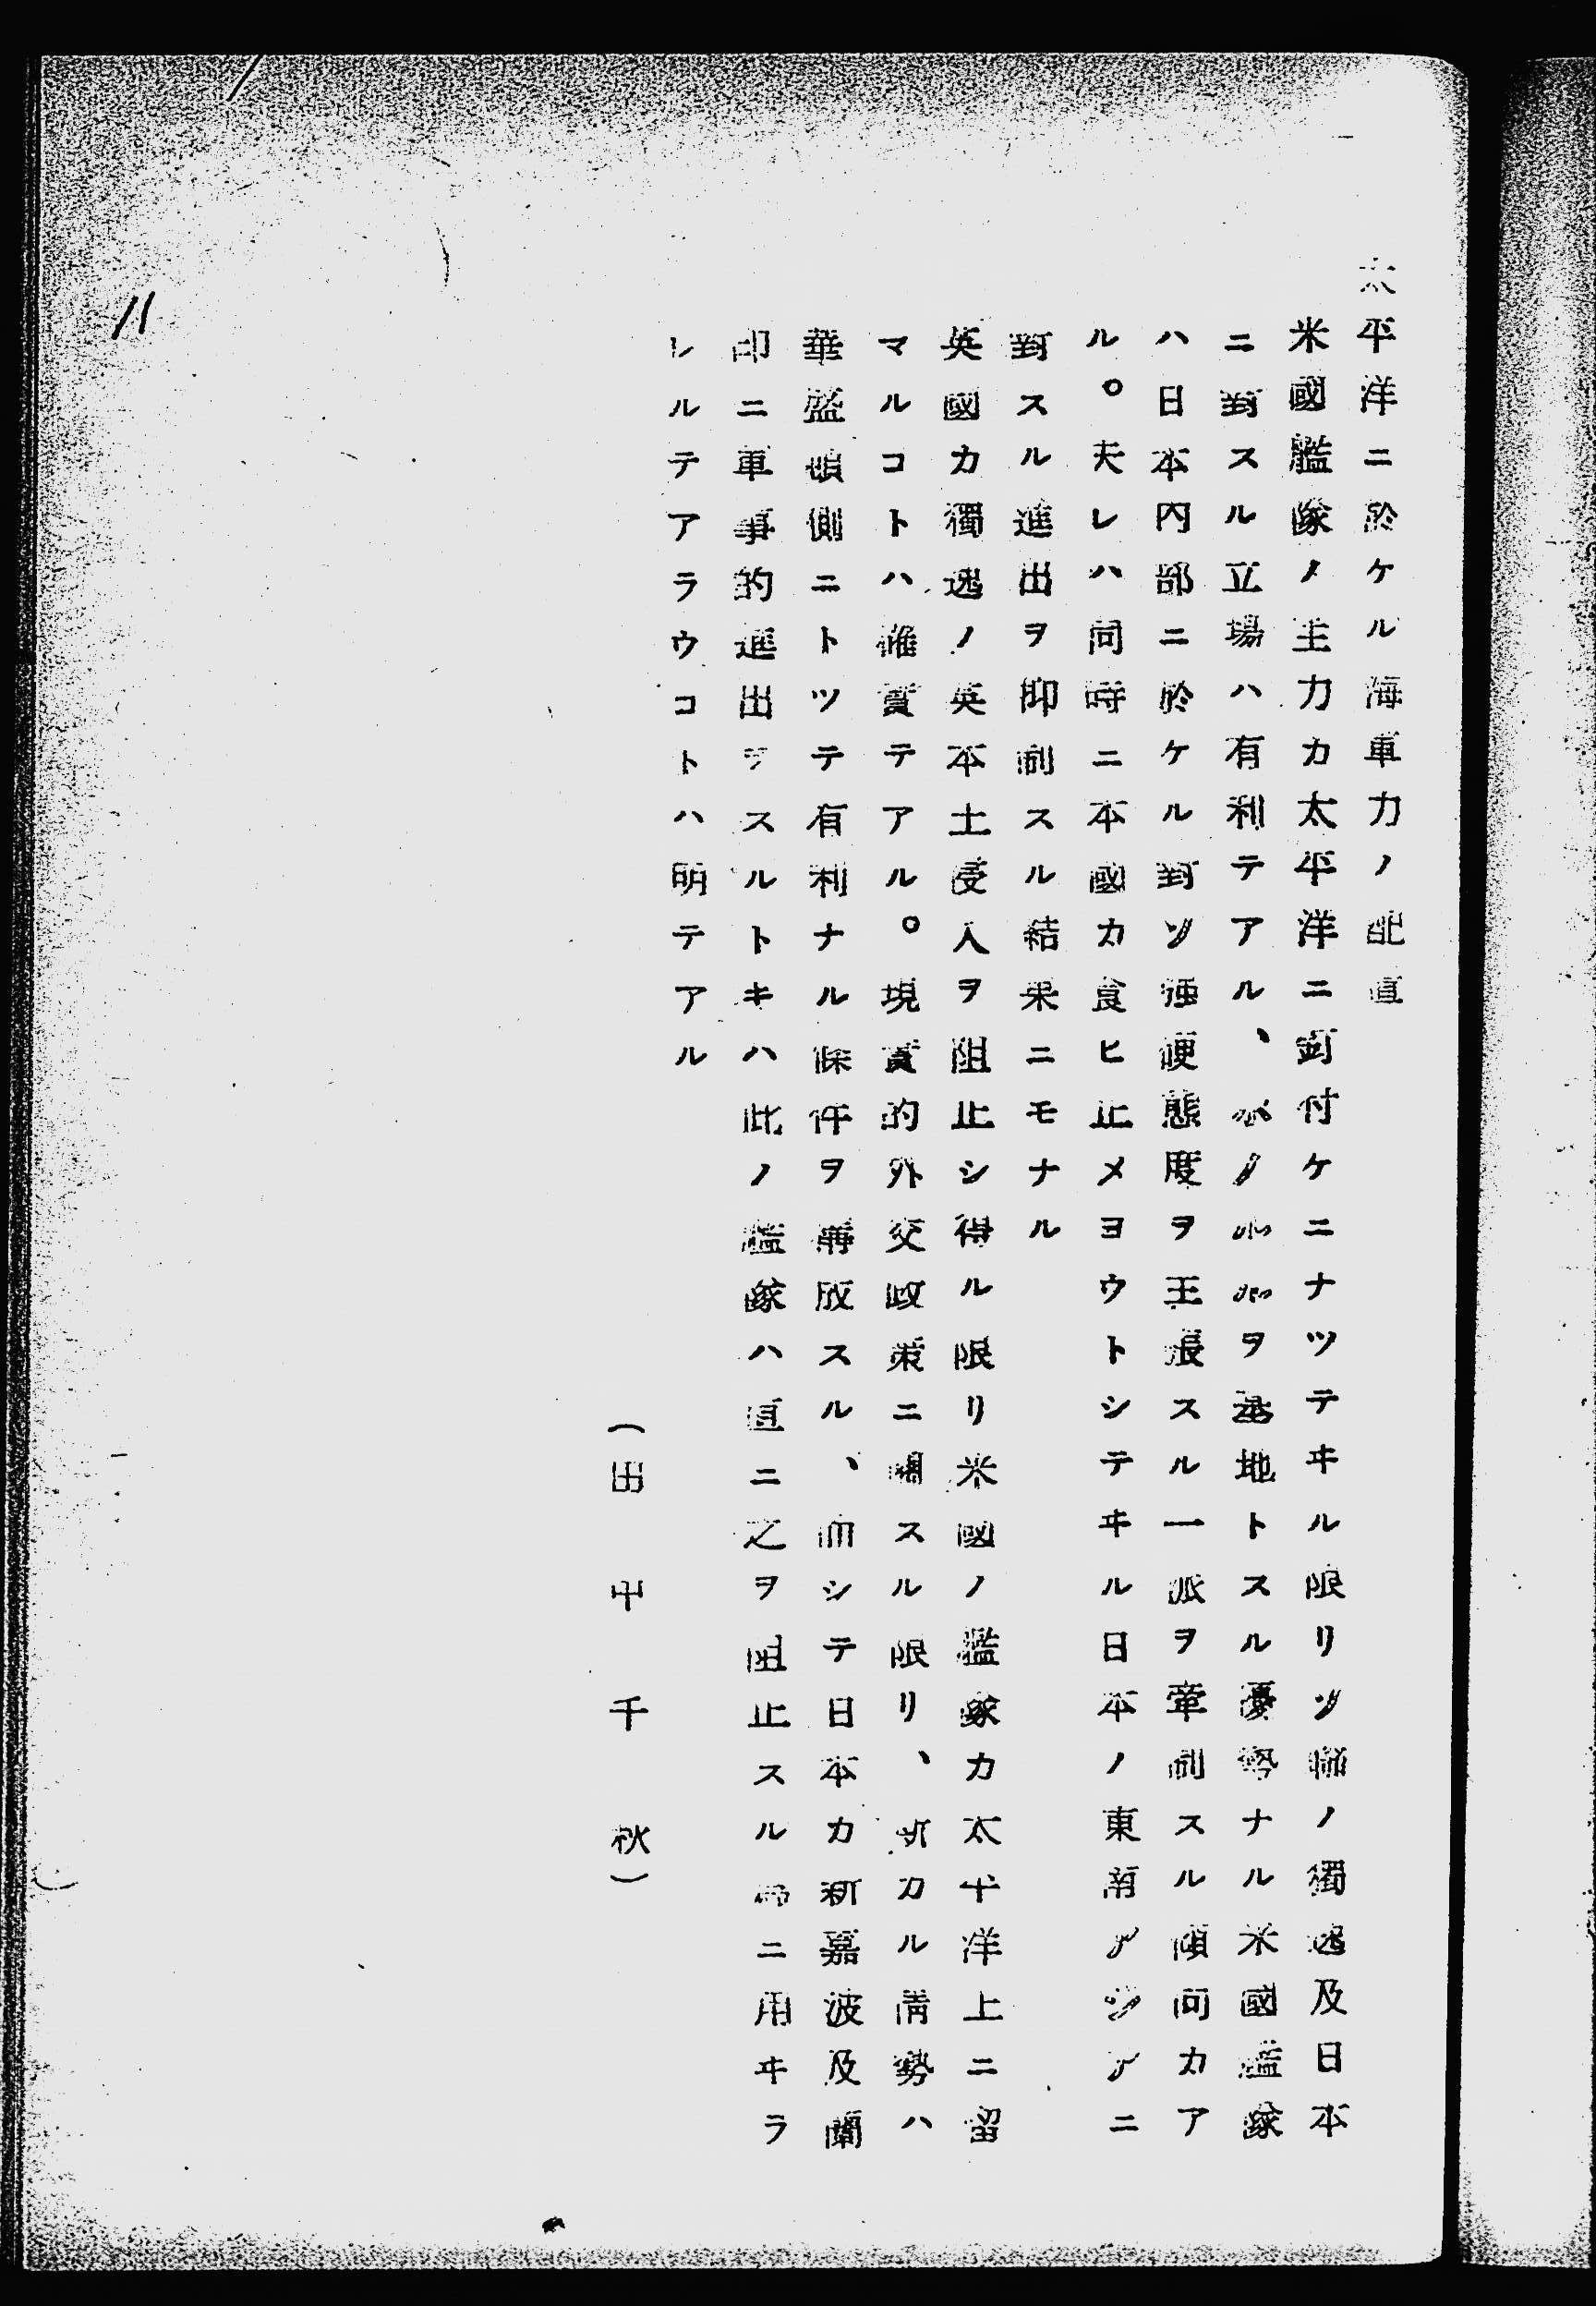 太平洋ニ於ケル海軍力ノ配置
米國艦隊ノ主力カ太平洋ニ釘付ケニナツテヰル限リソ聯ノ獨逸及日本
ニ對スル立場ハ有利テアル、ホノルルヲ基地トスル優勢ナル米國艦隊
ハ日本内部ニ於ケル對ソ強硬態度ヲ主張スル一派ヲ牽制スル傾向カア
ル。夫レハ同時ニ本國カ食ヒ止メヨウトシテヰル日本ノ東南アジアニ
對スル進出ヲ抑制スル結果ニモナル
英國カ獨逸ノ英本土侵入ヲ阻止シ得ル限リ米國ノ艦隊カ太平洋上ニ留
マルコトハ確實テアル。現實的外交政策ニ關スル限リ、斯カル情勢ハ
華盛頓側ニトツテ有利ナル條件ヲ構成スル、而シテ日本カ新嘉波及蘭
印ニ軍事的進出ヲスルトキハ此ノ艦隊ハ直ニ之ヲ阻止スル為ニ用ヰラ
レルテアラウコトハ明テアル
(田中千秋)
11